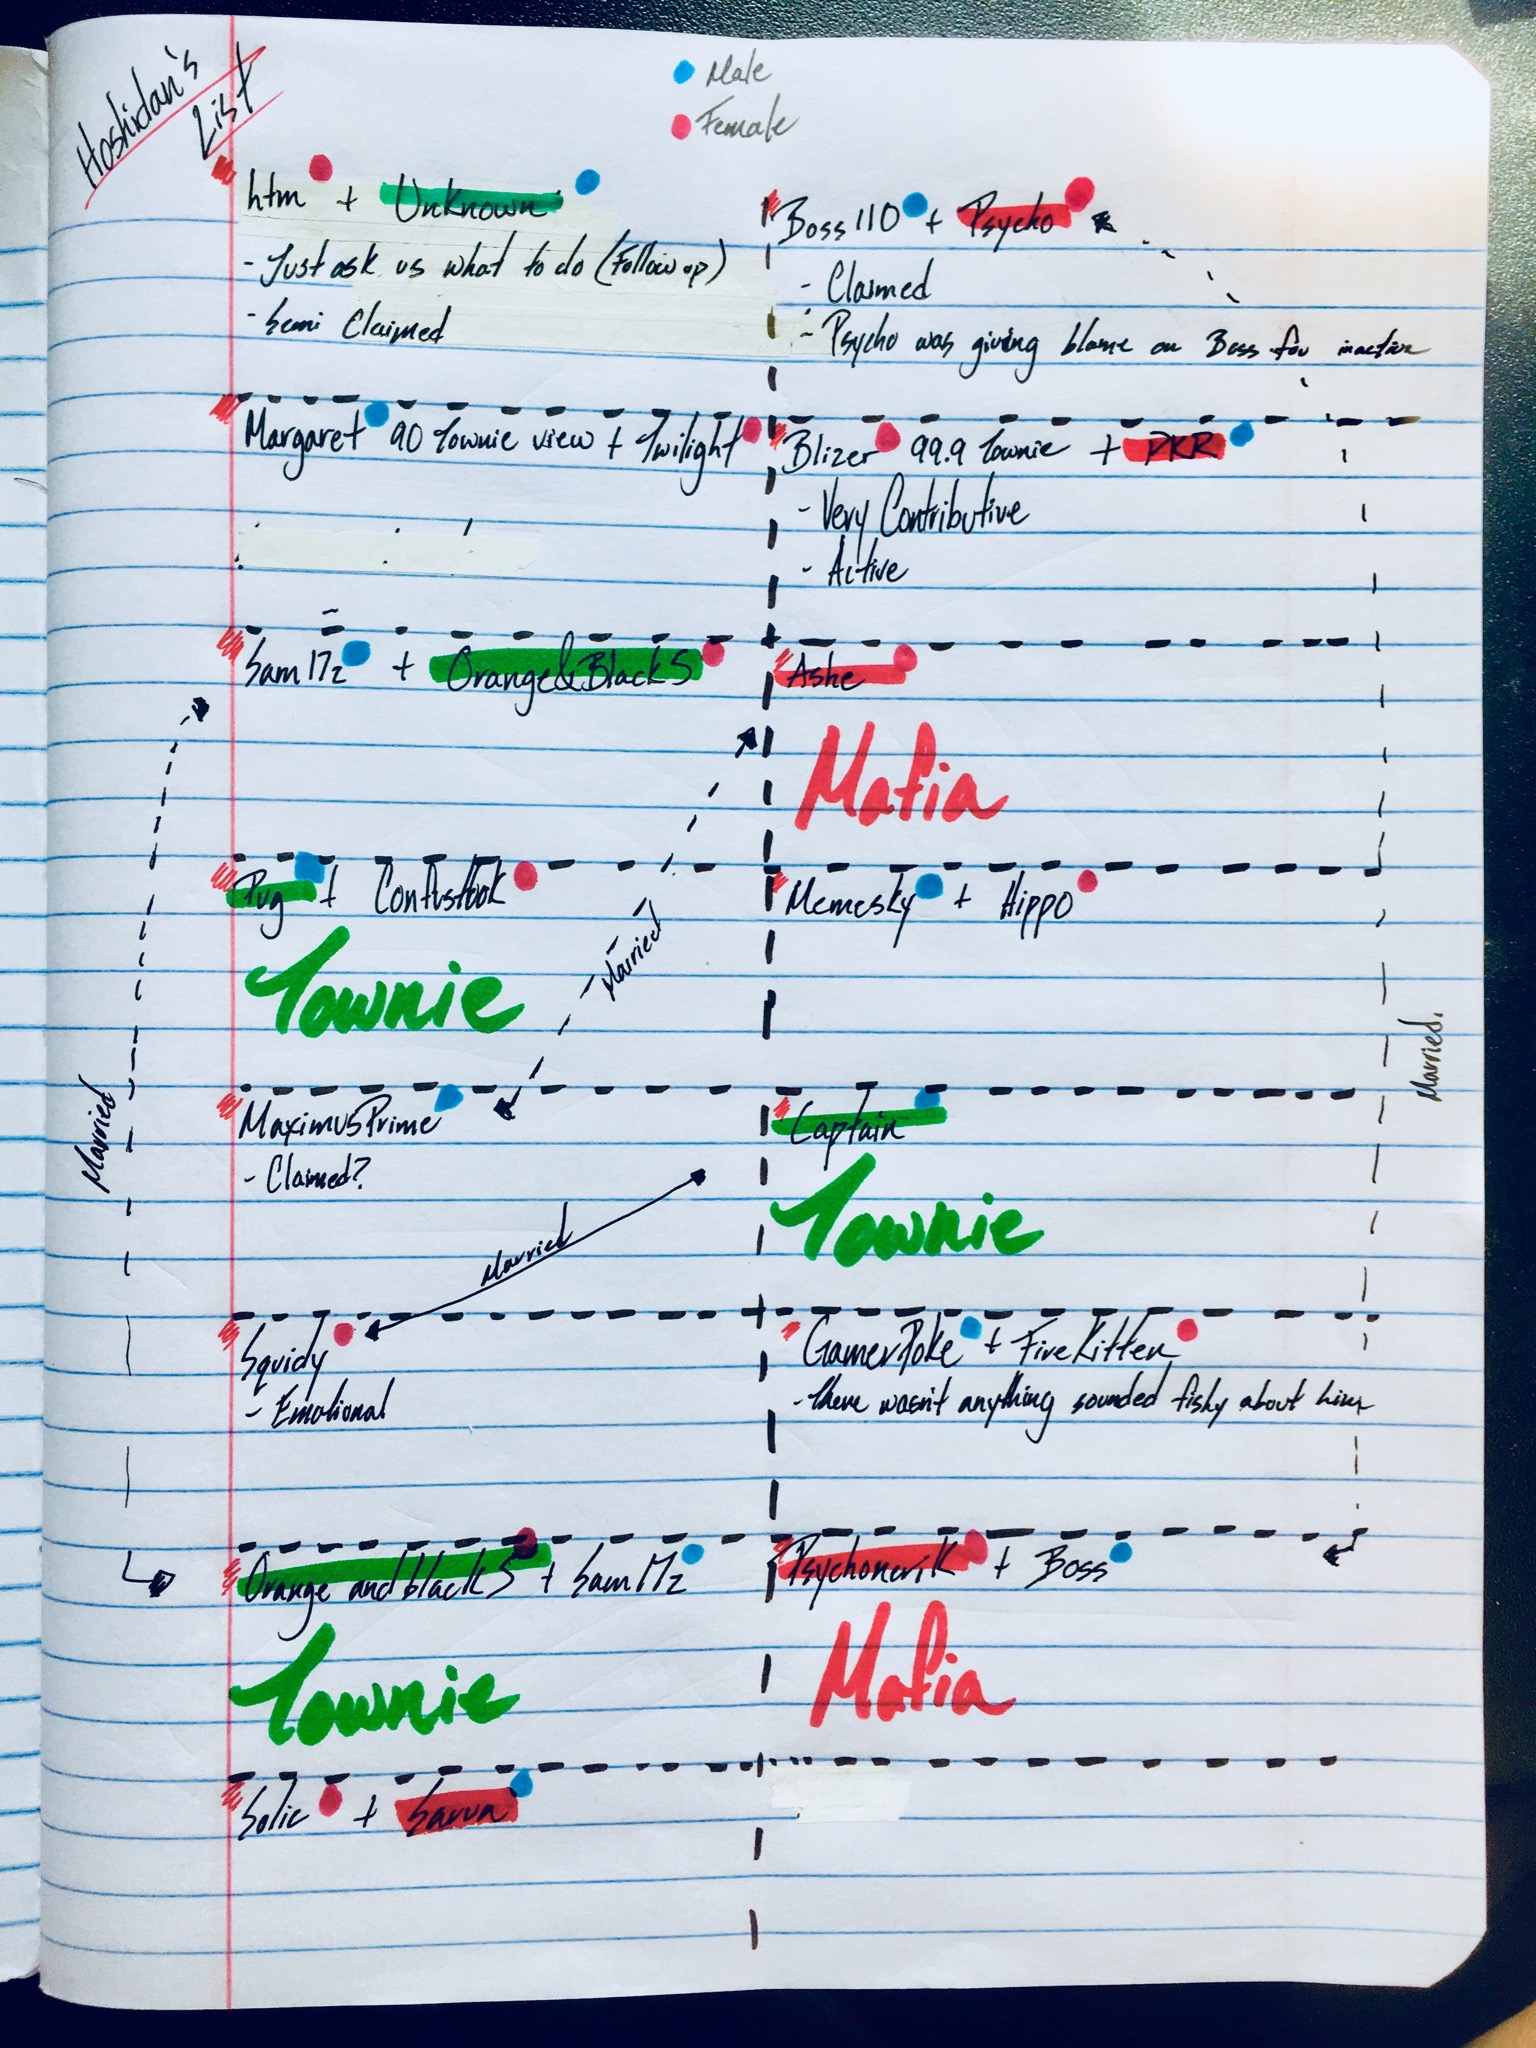 Hoshidan's
List
Male
Female
htm + Unknown
- Just ask us what to do (Follow up)
- Semi Claimed
Boss110 + Psycho
- Claimed
- Psycho was giving blame on Boss for inactive
Margaret 90 Townie view + Twilight
Blizer 99.9 Townie + PKR
- Very Contributive
- Active
Sam17z + Orange&Black5
Ashe
Mafia
Pug + Confustook
Townie
Married
Memesky + Hippo
Married.
Married
MaximusPrime
- Claimed?
Captain
Townie
Married
Squidy
- Emotional
GamerPoke + FireKitten
- there wasn't anything sounded fishy about him
Orange and black5 + Sam17z
Townie
Psychomerik + Boss
Mafia
Solic + Savva